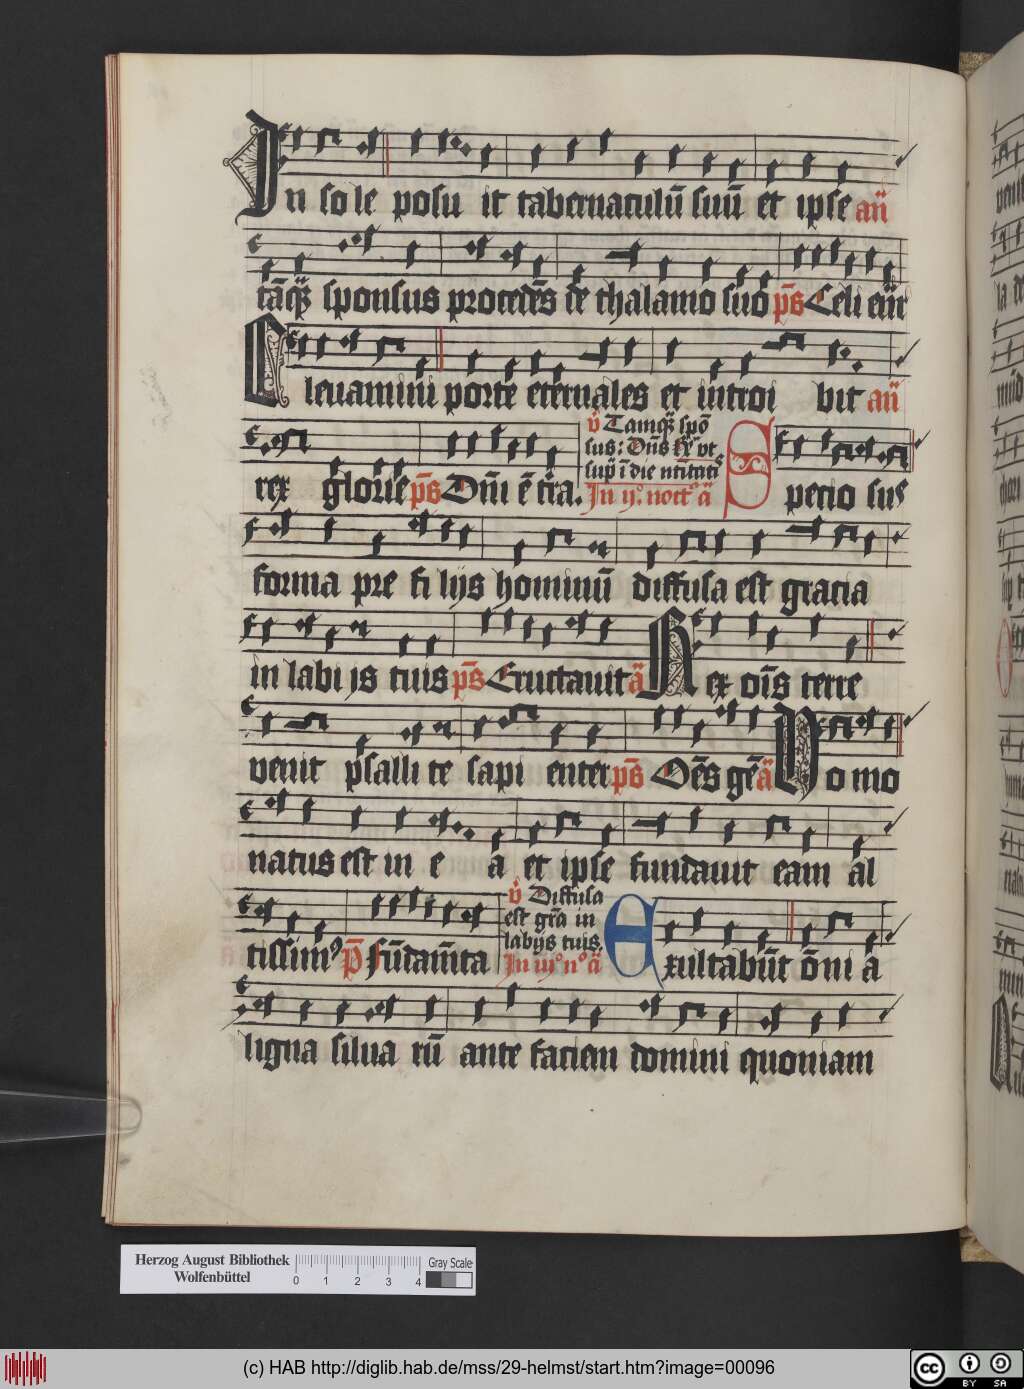 In sole posu it tabernaculū suū et ipse añ
tāqȝ sponsus procedēs de thalamo suo ps̄ Celi eñr
Eleuamini porte eternales et introi bit añ
rex glorie ps̄ Dñi ē tr̄a.
v̇ Tamqȝ spō
sus: Dñs
sup̄ ī die
In ij° noct° ā
Specio sus
forma pre fi lijs hominū diffusa est gracia
in labi js tuis ps̄ Eructauit ā Rex oīs terre
venit psalli te sapi enter ps̄ Oēs gē ā Domo
natus est in e a et ipse fundauit eam al
tissimꝰ p̄ Fūdam̄ta
v̇ Diffusa
est gr̄a in
labijs tuis.
In iij° n° ā
Exultabūt ōni ā
ligna silua rū ante faciem domini quoniam
Herzog August Bibliothek
Wolfenbüttel
0 1 2 3 4
Gray Scale
(c) HAB http://diglib.hab.de/mss/29-helmst/start.htm?image=00096
cc BY SA